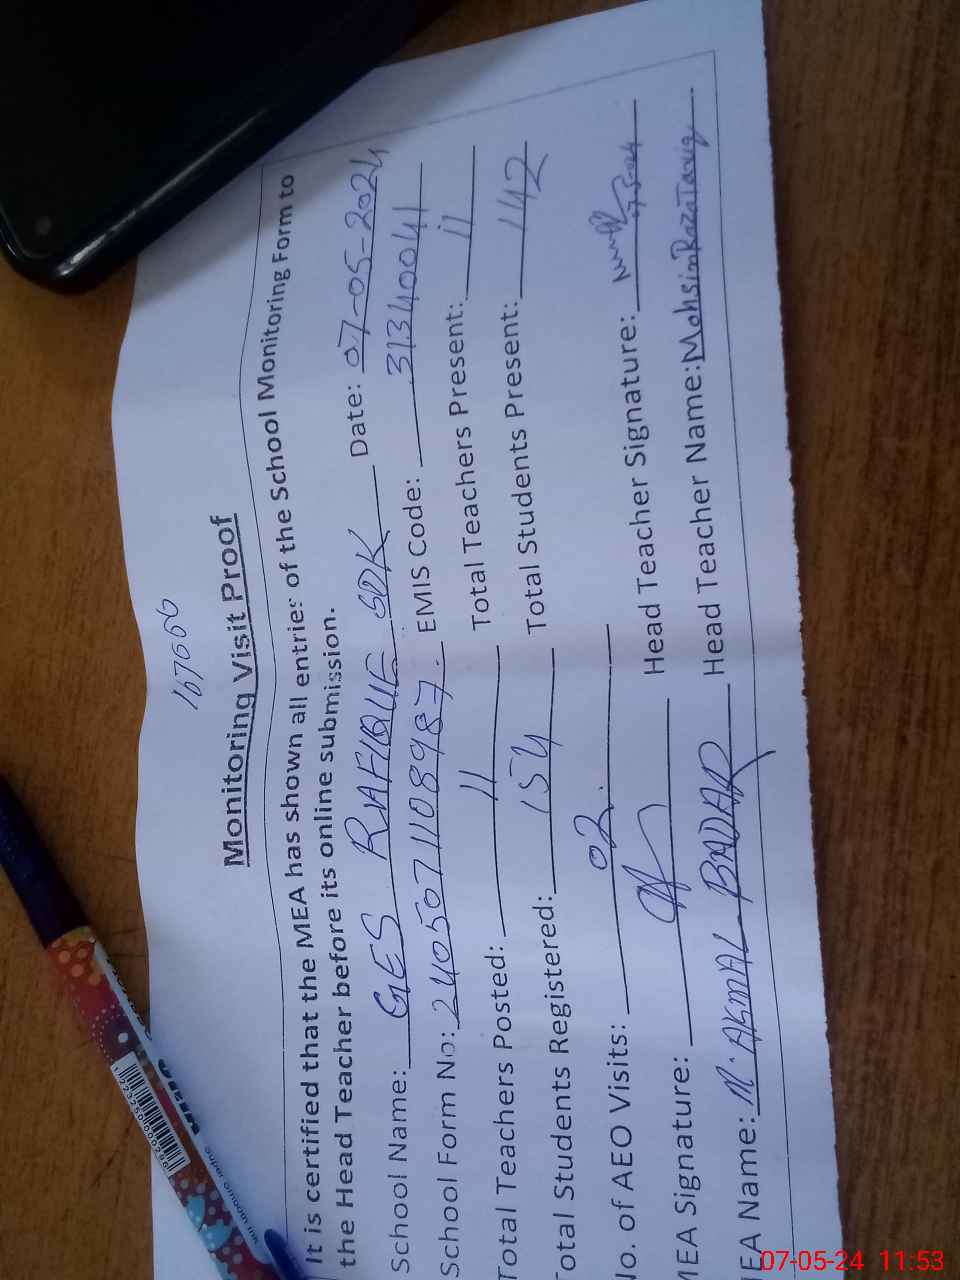 167666
Monitoring Visit Proof
It is certified that the MEA has shown all entries of the School Monitoring Form to
the Head Teacher before its online submission.
School Name: GES RAFIQUE SDK Date: 07-05-2024
School Form No: 2405071108987. EMIS Code: 31340041
Total Teachers Posted: 11 Total Teachers Present: 11
Total Students Registered: 154 Total Students Present: 142
No. of AEO Visits: 02.
MEA Signature: Head Teacher Signature: 7-5-24
MEA Name: M. AKMAL BADAR Head Teacher Name: Mohsin Raza Tariq
1223250000286
Super smooth ink
07-05-24 11:53